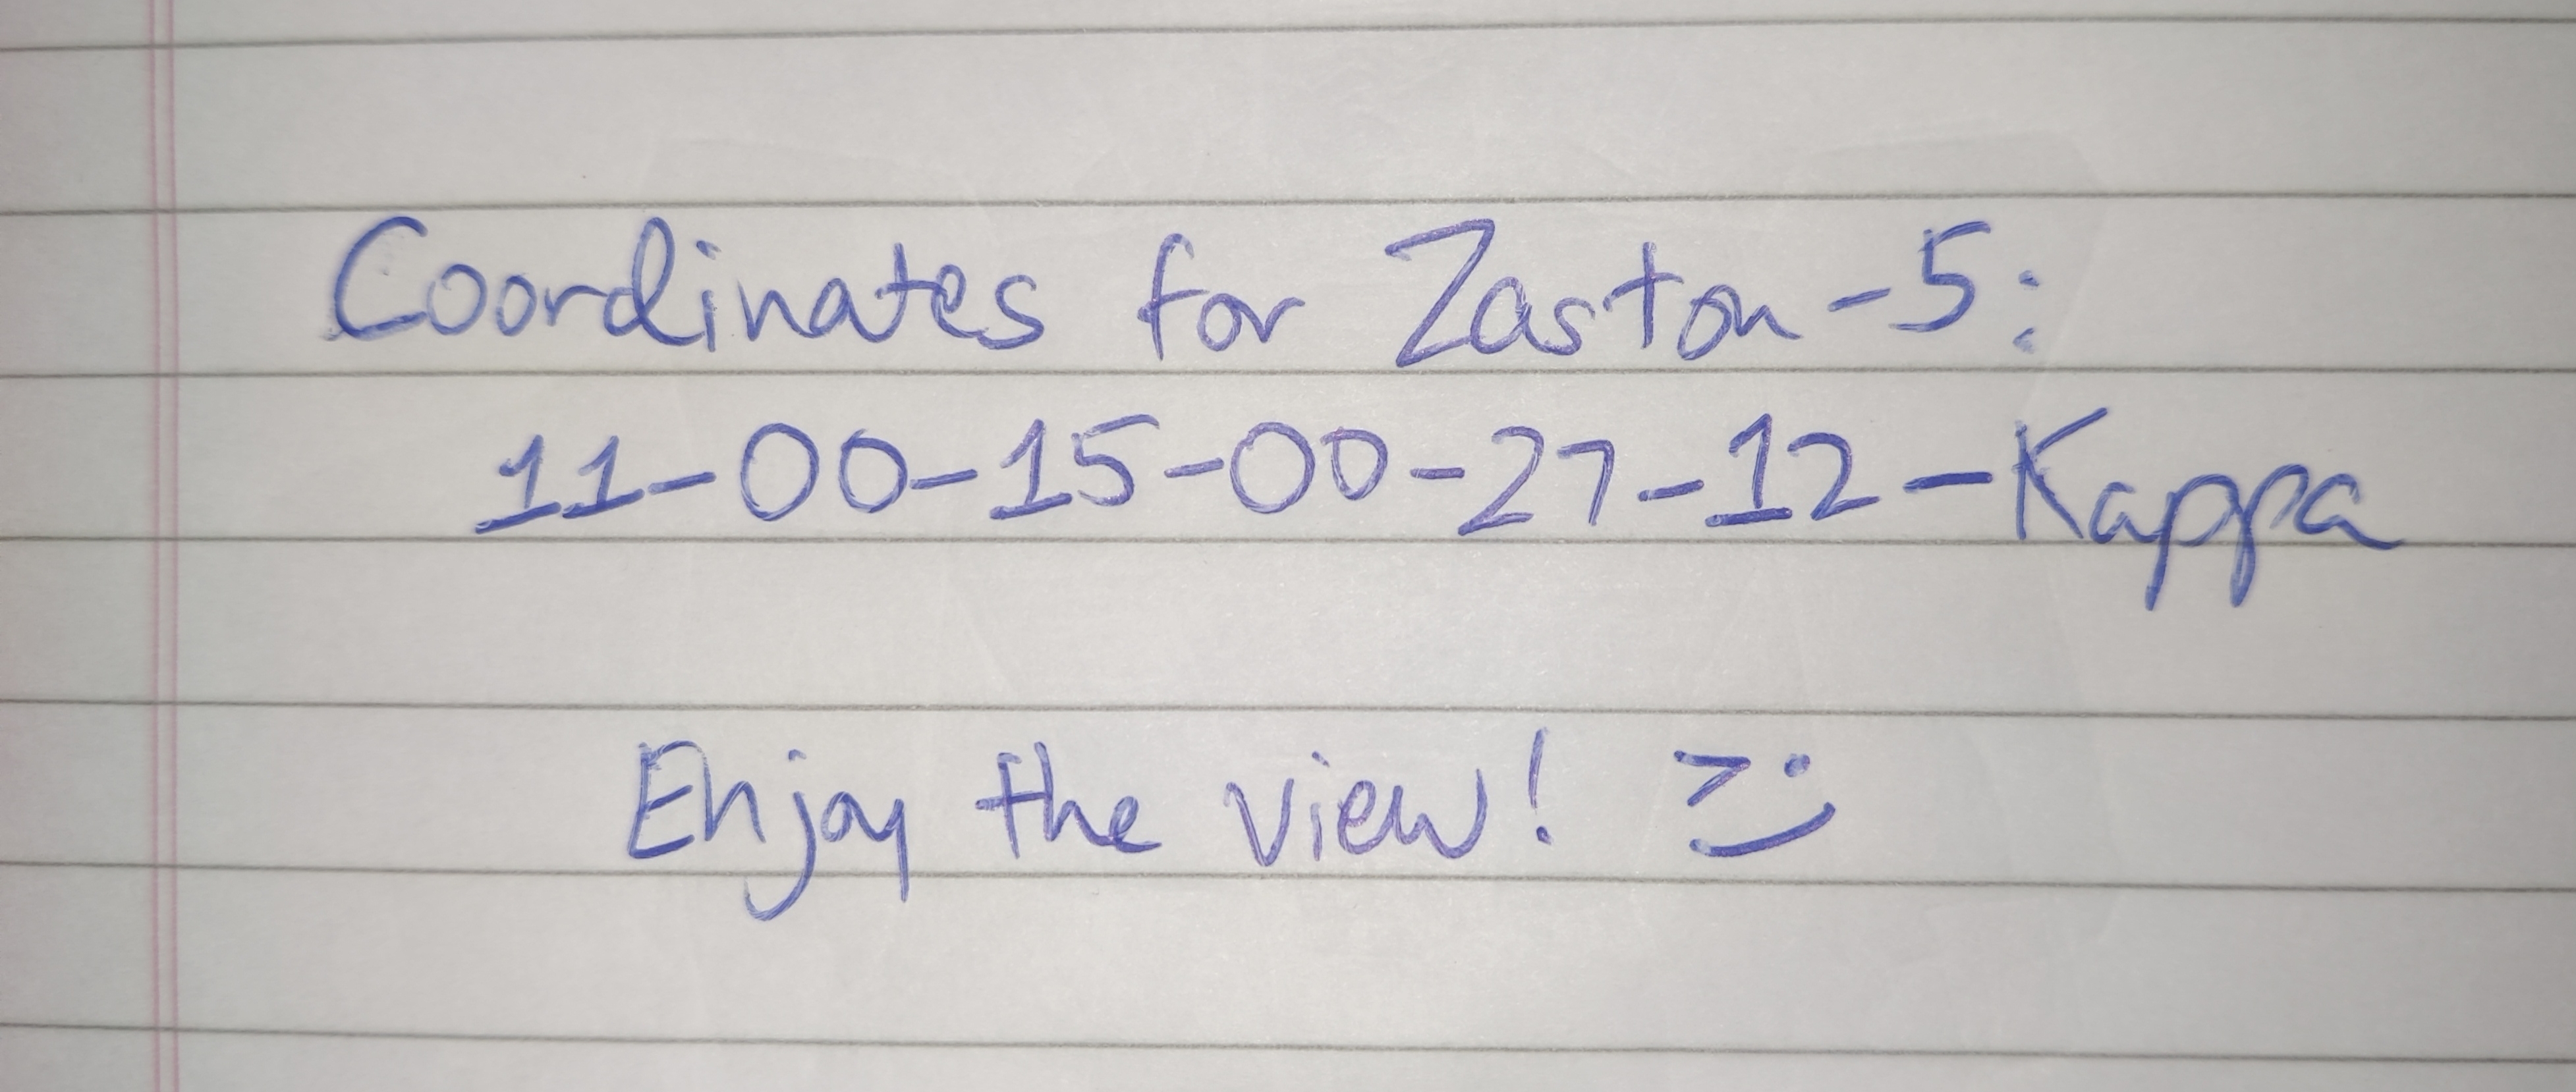 Coordinates for Zaston-5:
11-00-15-00-27-12-Kappa
Enjoy the view! >:)